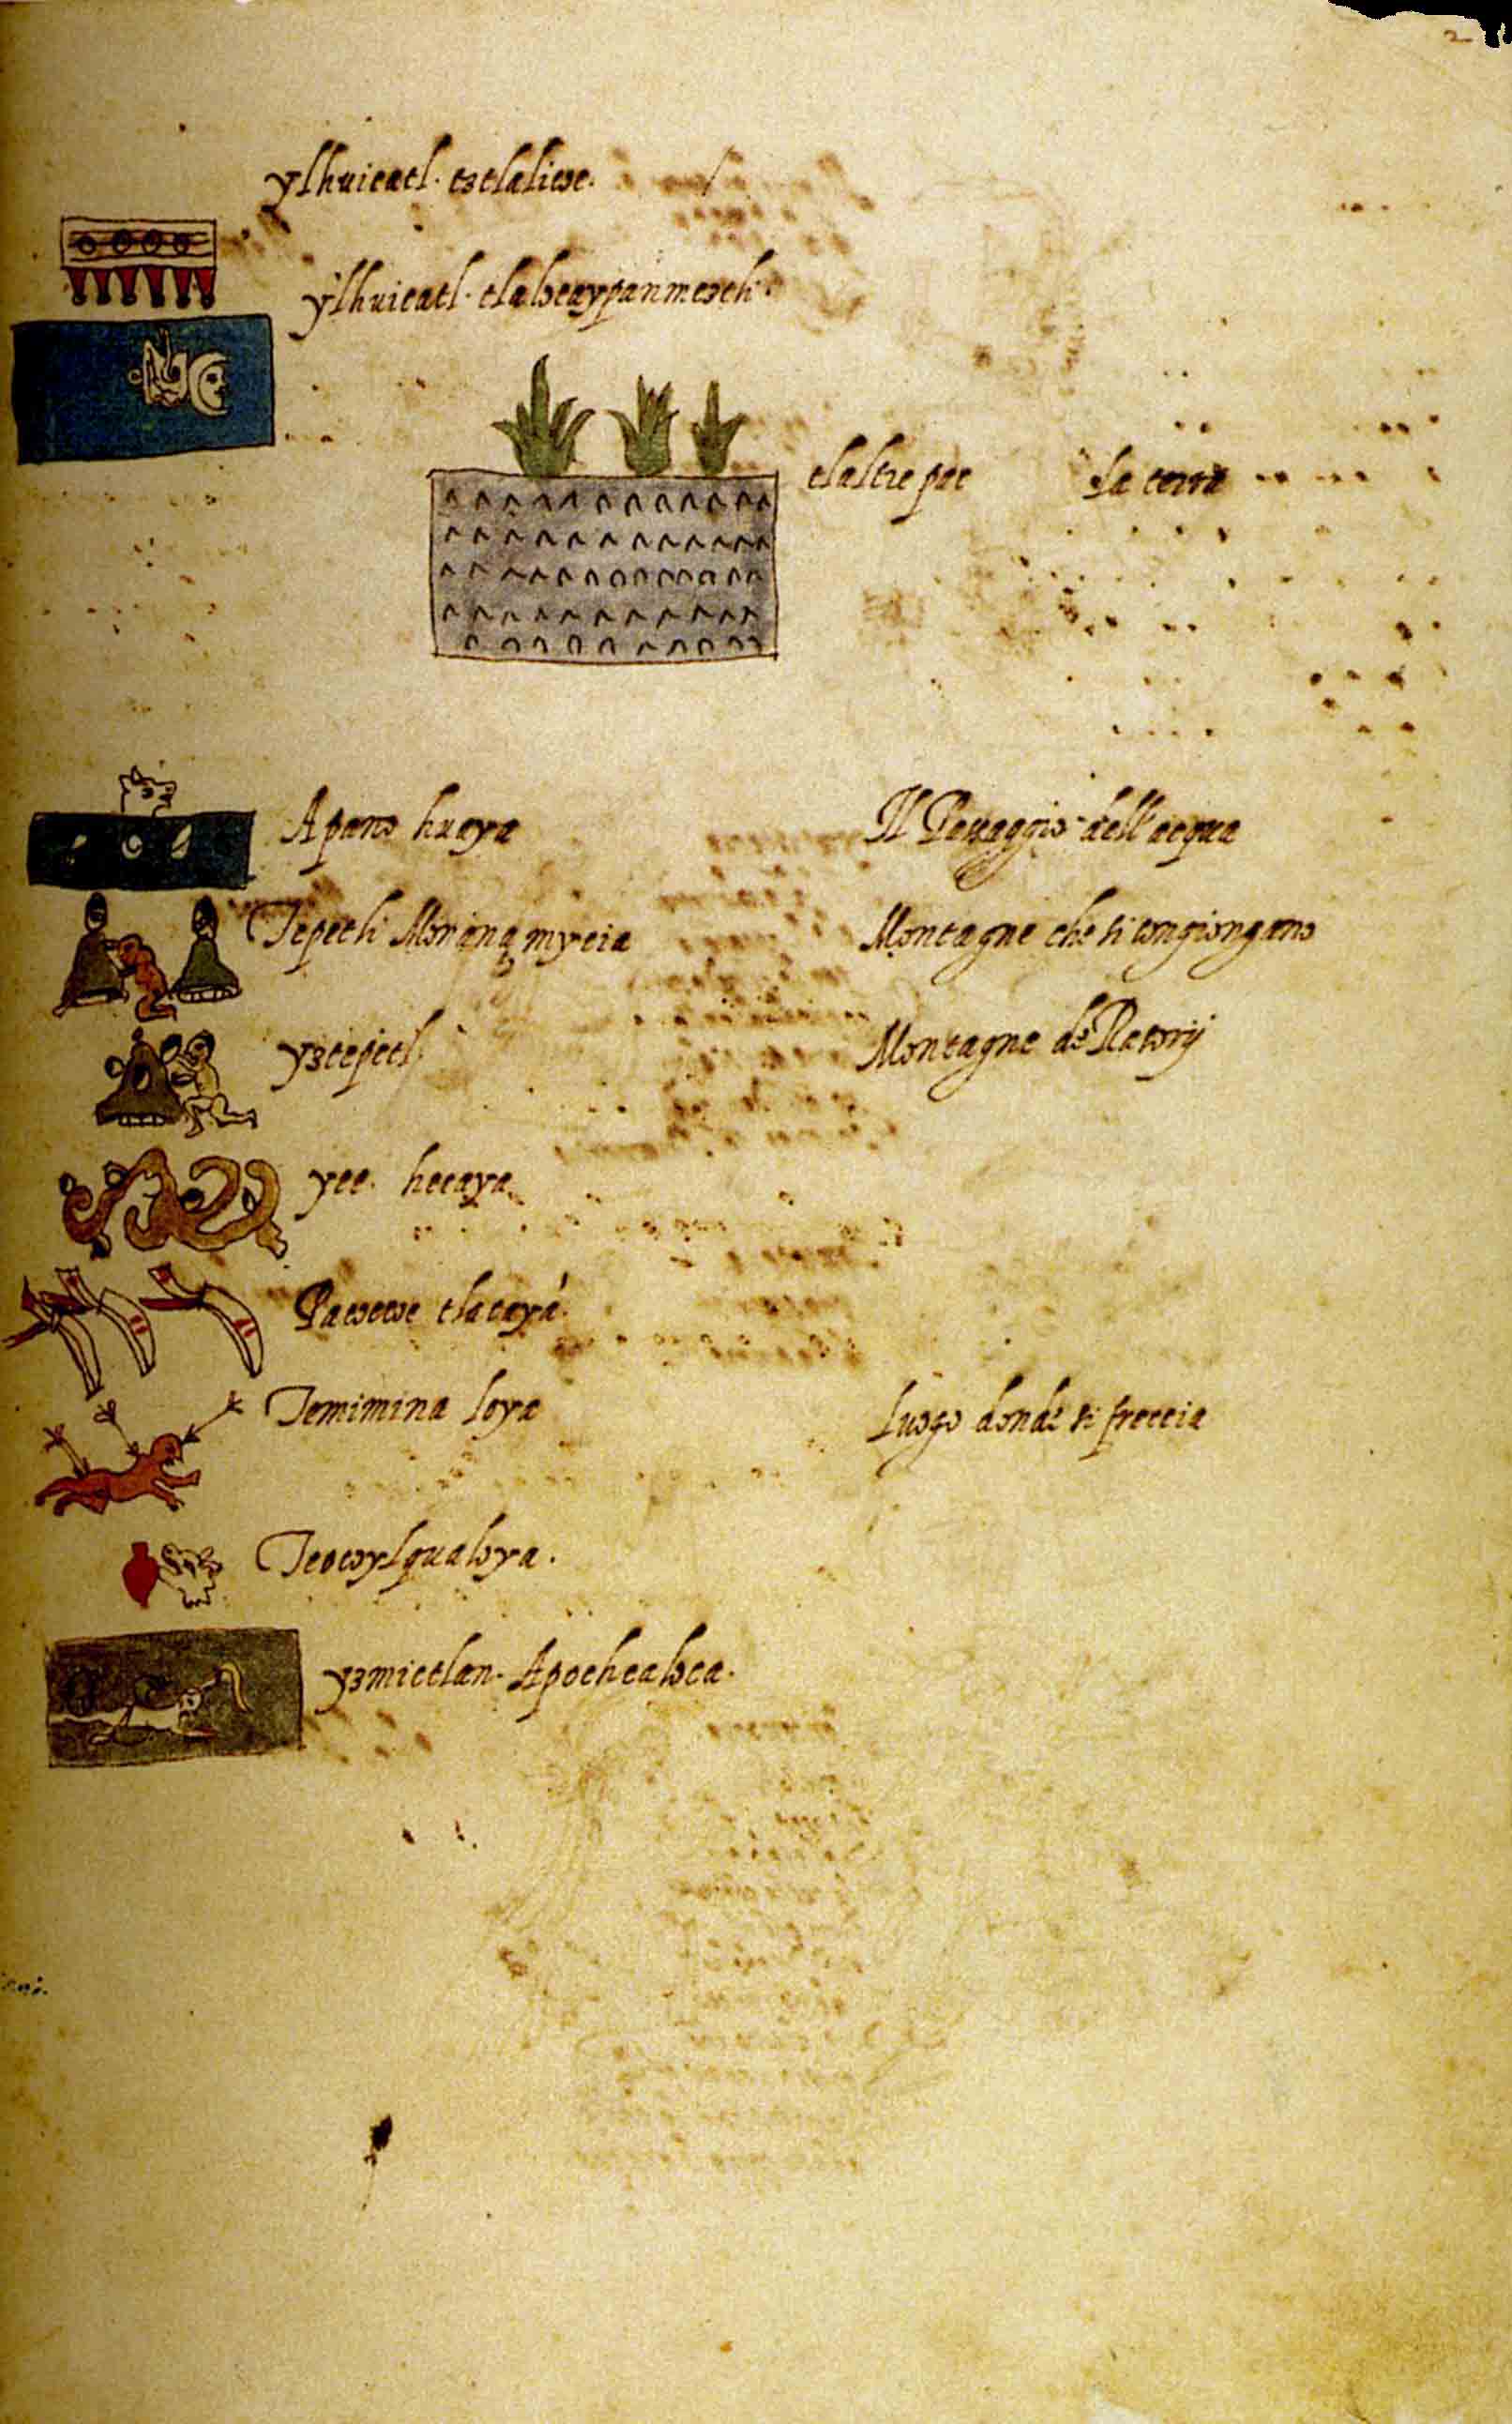 2
ylhuicatl. tztlalicoe.
ylhuicatl. tlalocaypanmeztli.
tlalticpac la terra
Apano huaya Il Passaggio dell'acqua
Tepetli Monanamycia Montagne che si congiongano
yztepetl Montagne de Rasorij
yee. hecaya
Pacoecoe tlacaya
Temimina loya Luogo donde si freccia
Teocoylqualoya.
yzmictlan. Apochcaloca.